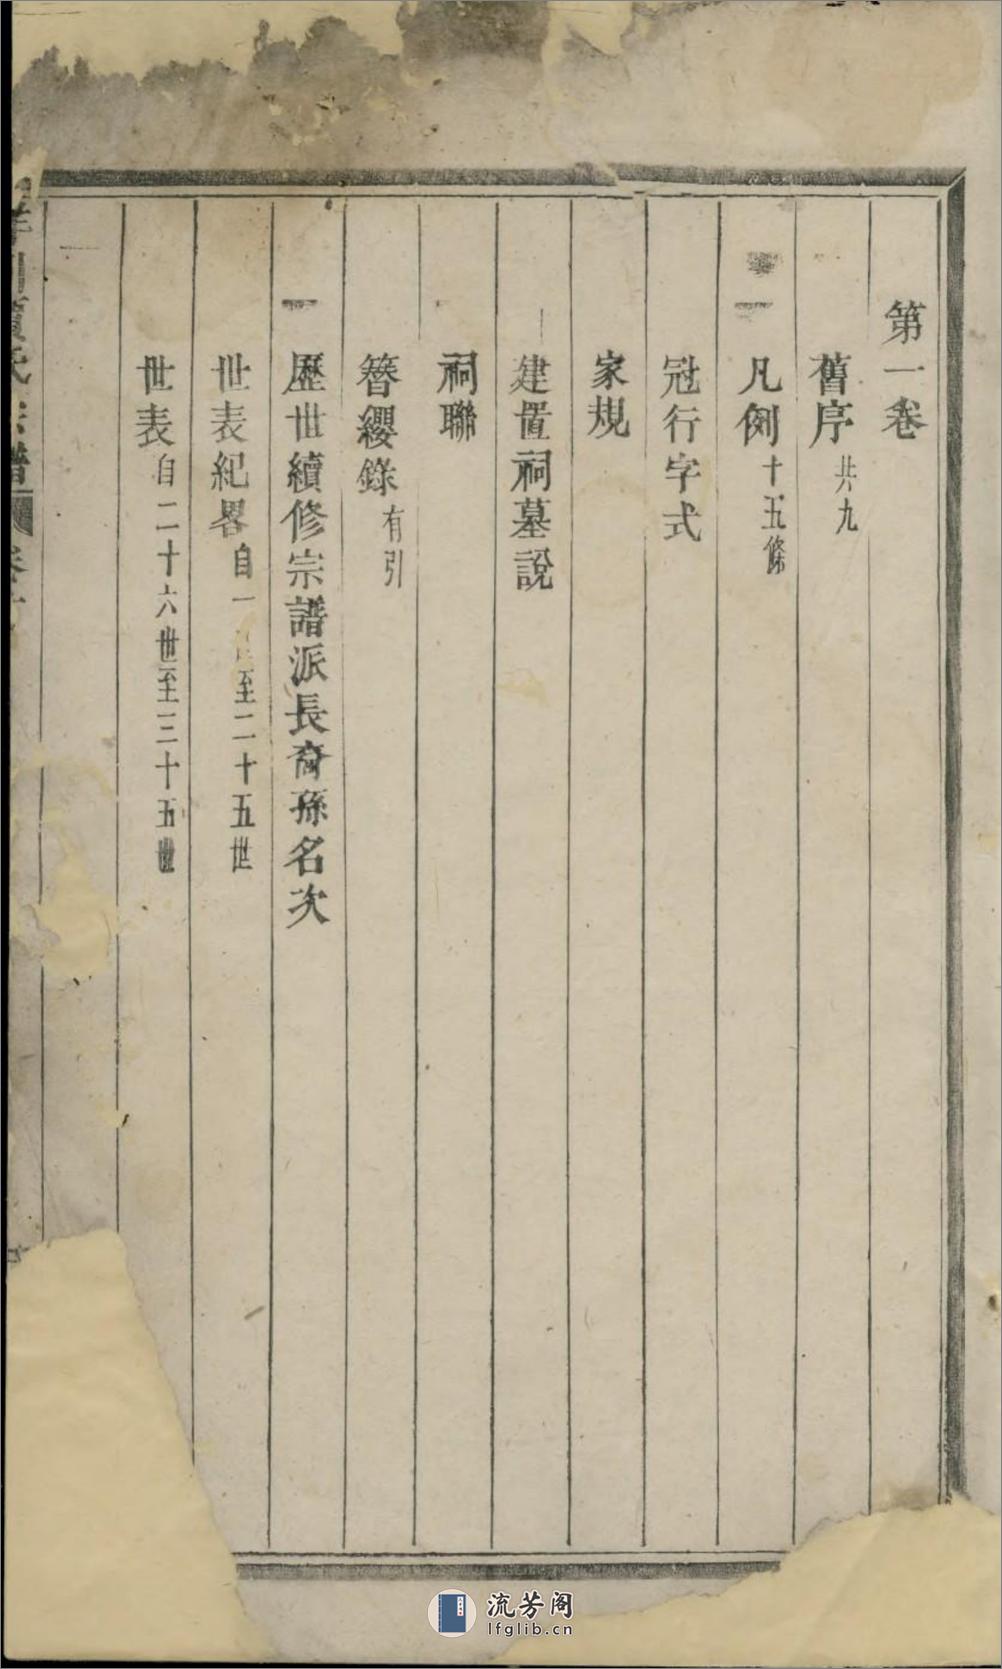 第一卷
舊序共九
凡例十五條
冠行字式
家規
建置祠墓說
祠聯
簪纓錄有引
歷世續修宗譜派長裔孫名次
世表紀畧自一至二十五世
世表自二十六世至三十五世
氏宗譜
流芳阁
lfglib.cn